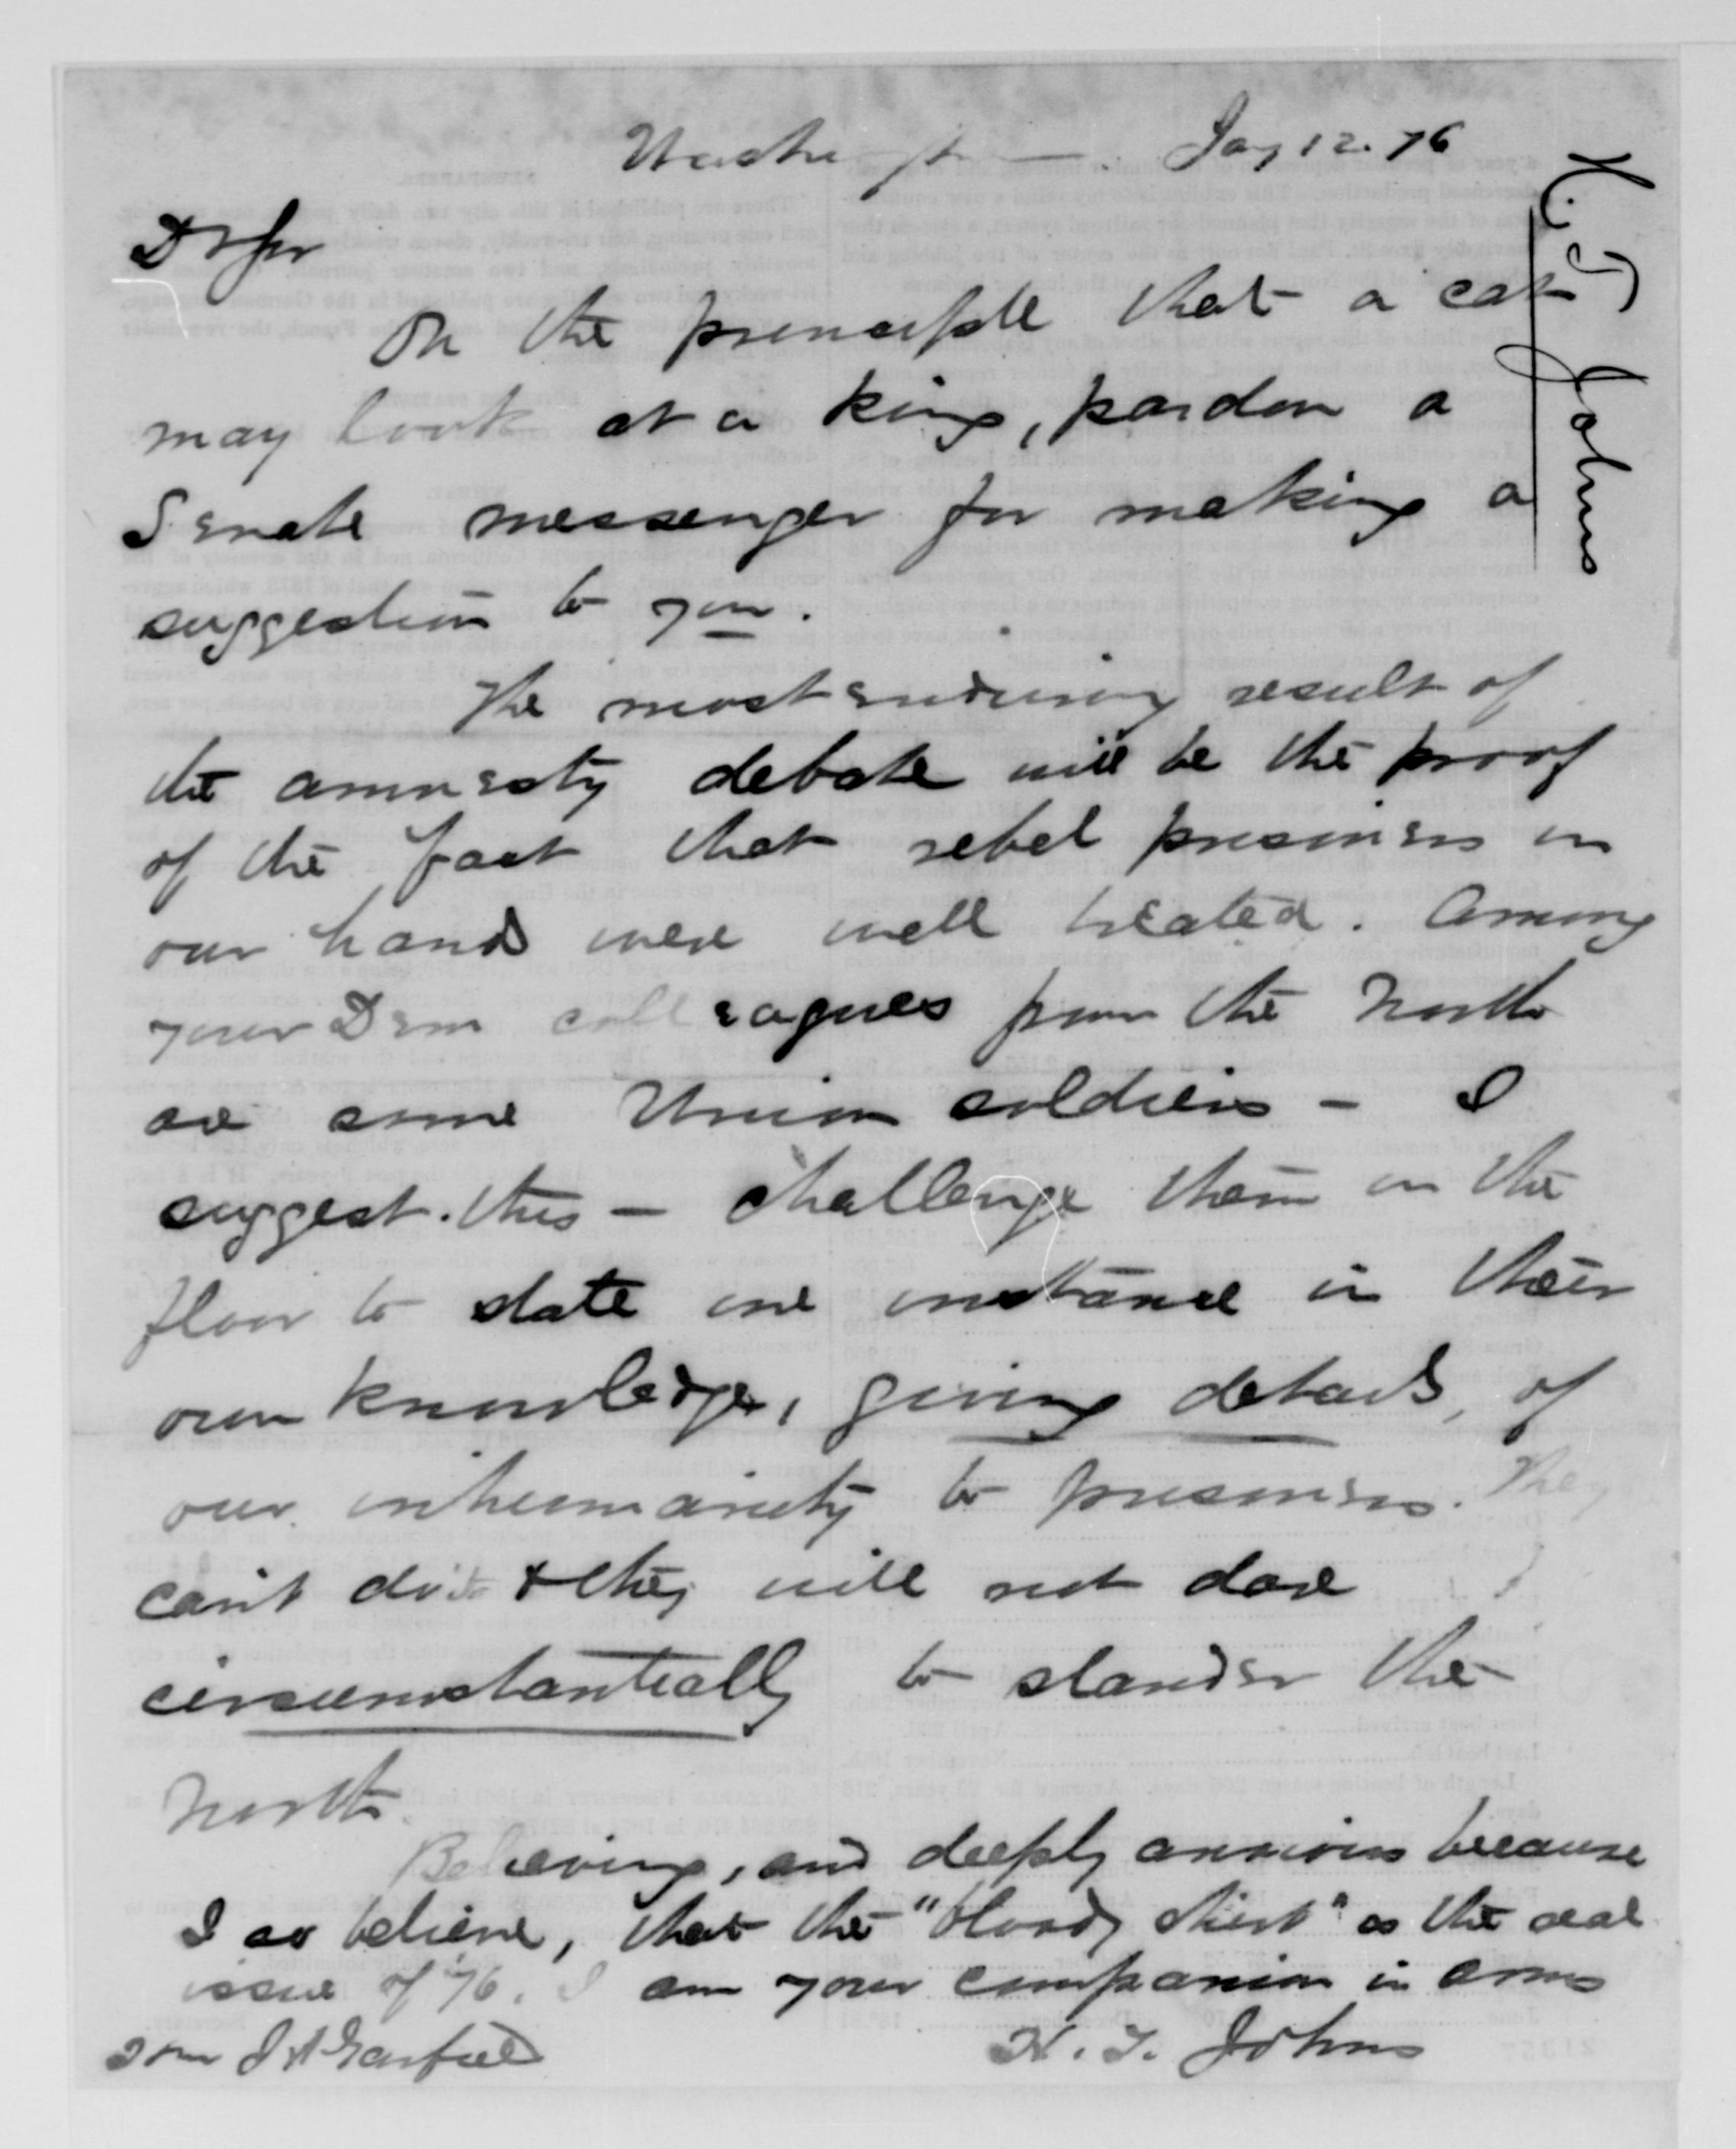 Washington Jany 12. 76
H. T. Johns
Dr Sir
On the principle that a cat
may look at a king, pardon a
Senate messenger for making a
suggestion to you.
The most enduring result of
the amnesty debate will be the proof
of the fact that rebel prisoners in
our hands were well treated. Among
your Dem colleagues from the North
are some Union soldiers - I
suggest this - challenge them on the
floor to state one instance in their
own knowledge, giving details, of
our inhumanity to prisoners. They
can't do it & they will not dare
circumstantially to slander the
North.
Believing, and deeply anxious because
I so believe, that the "bloody shirt" is the real
issue of 76. I am your companion in arms
H. T. Johns
J A Garfield